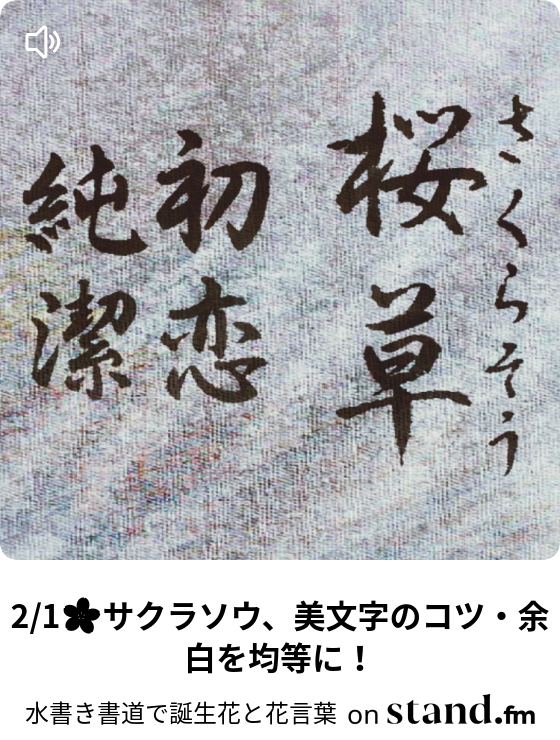 さくらそう
桜草
初恋
純潔
2/1🌸サクラソウ、美文字のコツ・余
白を均等に！
水書き書道で誕生花と花言葉 on stand.fm